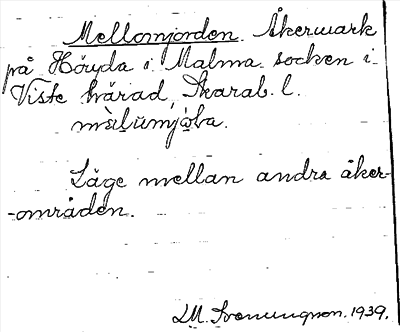 Mellomjorden. Åkermark
på Höryda i Malma socken i
Viste härad, Skarab. l.
Läge mellan andra åker-
-områden.
LM. Svenungsson. 1939.